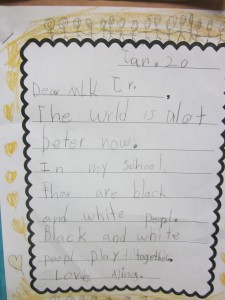 Jan. 20
Dear MLK Jr.,
The wrld is alot
beter now.
In my school
Ther are black
and white peopl.
Black and white
peopl play together.
Love